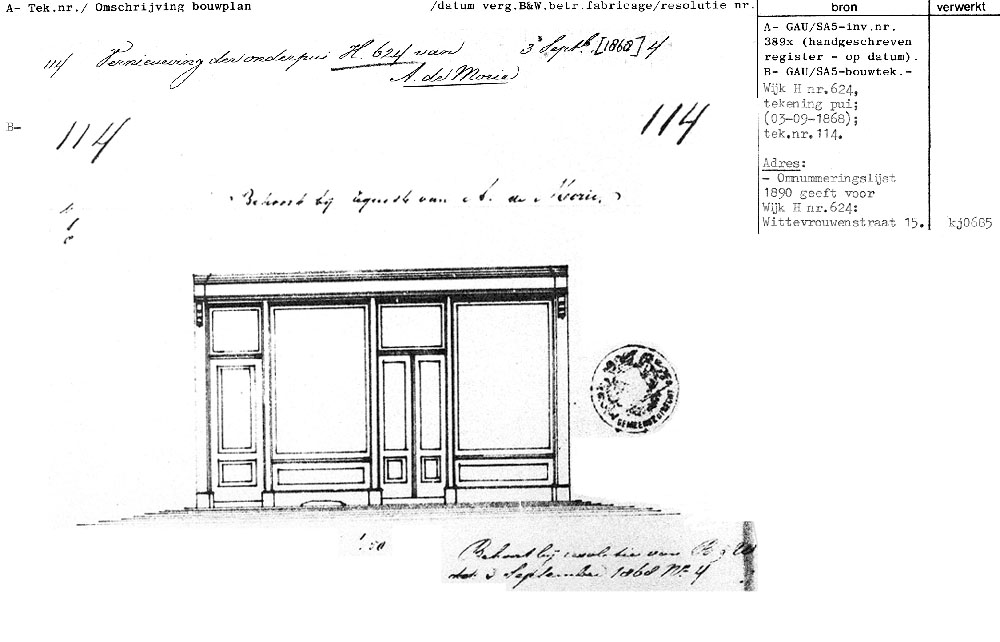 A- Tek.nr./ Omschrijving bouwplan /datum verg.B&W.betr.fabricage/resolutie nr.
bron
verwerkt
114 Vernieuwing der onderpui H. 624 van 3 Septb. [1868] 4
A. de Morie
A- GAU/SA5-inv.nr.
389x (handgeschreven
register - op datum).
B- GAU/SA5-bouwtek.-
Wijk H nr.624,
tekening pui;
(03-09-1868);
tek.nr.114.
Adres:
- Omnummeringslijst
1890 geeft voor
Wijk H nr.624:
Wittevrouwenstraat 15.
kj0685
B-
114
114
Behoort bij requeste van A. de Morie.
GEMEENTE UTRECHT
1:50
Behoort bij resolutie van B & W
dd. 3 September 1868 No. 4